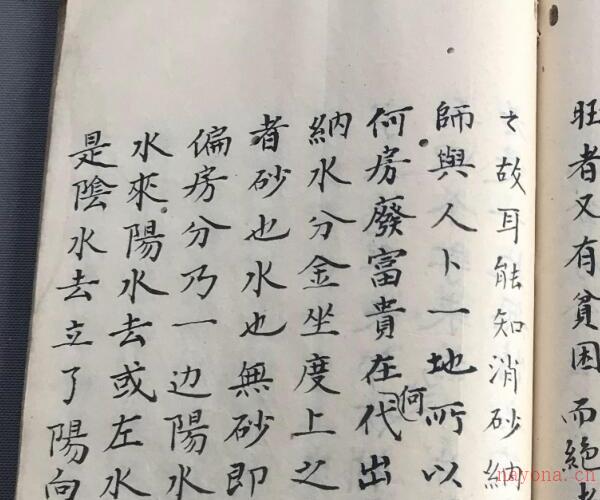 旺者又有貧困而絶
々故耳能知消砂納
師與人卜一地所以
何房廢富貴在何代出
納水分金坐度上之
者砂也水也無砂即
偏房分乃一边陽水
水來陽水去或左水
是陰水去立了陽向
nayona.cn